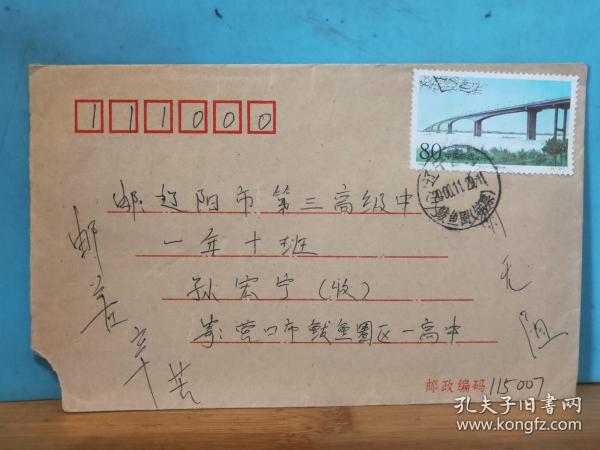 111000
80 中国邮政
2000.11.29.11
邮:辽阳市第三高级中
一年十班
孙宏宁(收)
寄:营口市鲅鱼圈区一高中
邮政编码 115007
邮差辛苦
孔夫子旧书网
www.kongfz.com